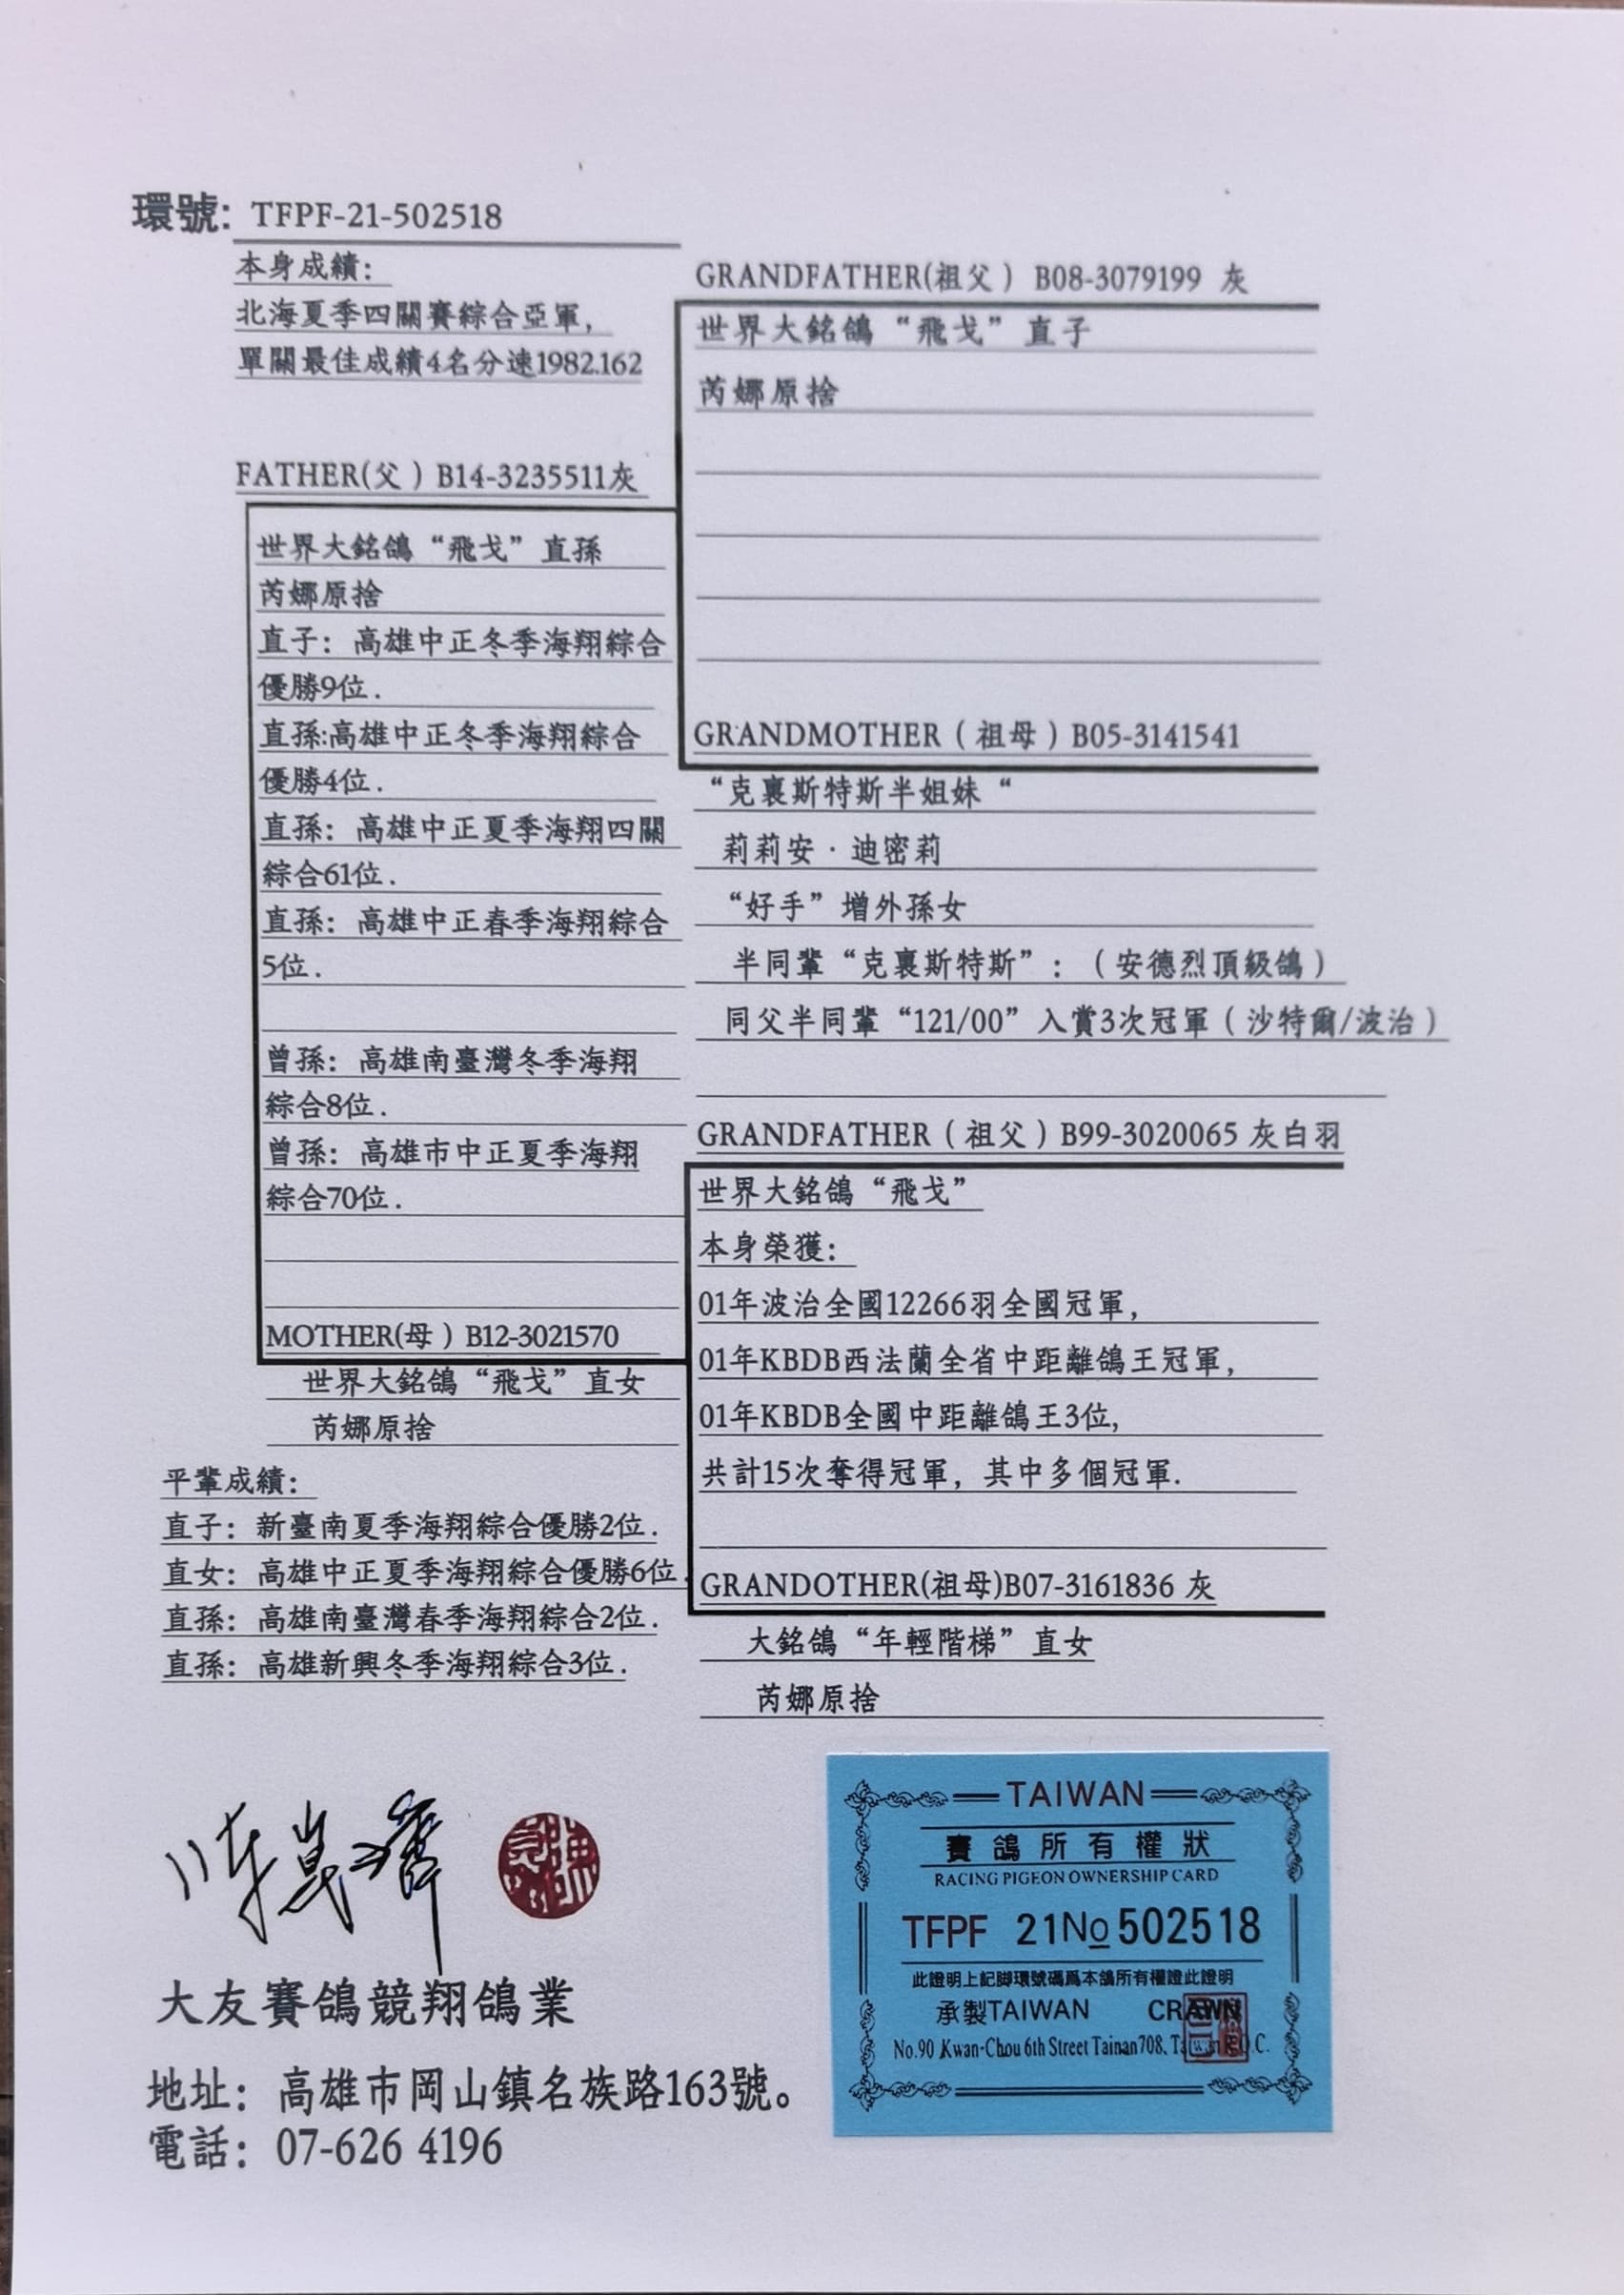 環號: TFPF-21-502518
本身成績:
北海夏季四關賽綜合亞軍,
單關最佳成績4名分速1982.162
FATHER(父)B14-3235511灰
世界大銘鴿“飛戈”直孫
芮娜原捨
直子: 高雄中正冬季海翔綜合
優勝9位.
直孫:高雄中正冬季海翔綜合
優勝4位.
直孫: 高雄中正夏季海翔四關
綜合61位.
直孫: 高雄中正春季海翔綜合
5位.
曾孫: 高雄南臺灣冬季海翔
綜合8位.
曾孫: 高雄市中正夏季海翔
綜合70位.
MOTHER(母)B12-3021570
世界大銘鴿“飛戈”直女
芮娜原捨
平輩成績:
直子: 新臺南夏季海翔綜合優勝2位.
直女: 高雄中正夏季海翔綜合優勝6位.
直孫: 高雄南臺灣春季海翔綜合2位.
直孫: 高雄新興冬季海翔綜合3位.
GRANDFATHER(祖父)B08-3079199 灰
世界大銘鴿“飛戈”直子
芮娜原捨
GRANDMOTHER(祖母)B05-3141541
“克裏斯特斯半姐妹“
莉莉安·迪密莉
“好手”增外孫女
半同輩“克裏斯特斯”:(安德烈頂級鴿)
同父半同輩“121/00”入賞3次冠軍(沙特爾/波治)
GRANDFATHER(祖父)B99-3020065 灰白羽
世界大銘鴿“飛戈”
本身榮獲:
01年波治全國12266羽全國冠軍,
01年KBDB西法蘭全省中距離鴿王冠軍,
01年KBDB全國中距離鴿王3位,
共計15次奪得冠軍, 其中多個冠軍.
GRANDOTHER(祖母)B07-3161836 灰
大銘鴿“年輕階梯”直女
芮娜原捨
大友賽鴿競翔鴿業
地址: 高雄市岡山鎮名族路163號。
電話: 07-626 4196
TAIWAN
賽鴿所有權狀
RACING PIGEON OWNERSHIP CARD
TFPF 21No 502518
此證明上記脚環號碼爲本鴿所有權證此證明
承製TAIWAN CRAWN
No.90 Kwan-Chou 6th Street Tainan708, Taiwan R.O.C.